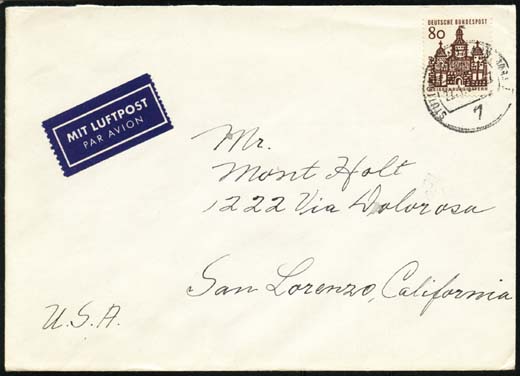 DEUTSCHE BUNDESPOST
80
ELLINGEN/BAYERN
7
MIT LUFTPOST
PAR AVION
Mr.
Mont Holt
1222 Via Dolorosa
San Lorenzo, California
U.S.A.